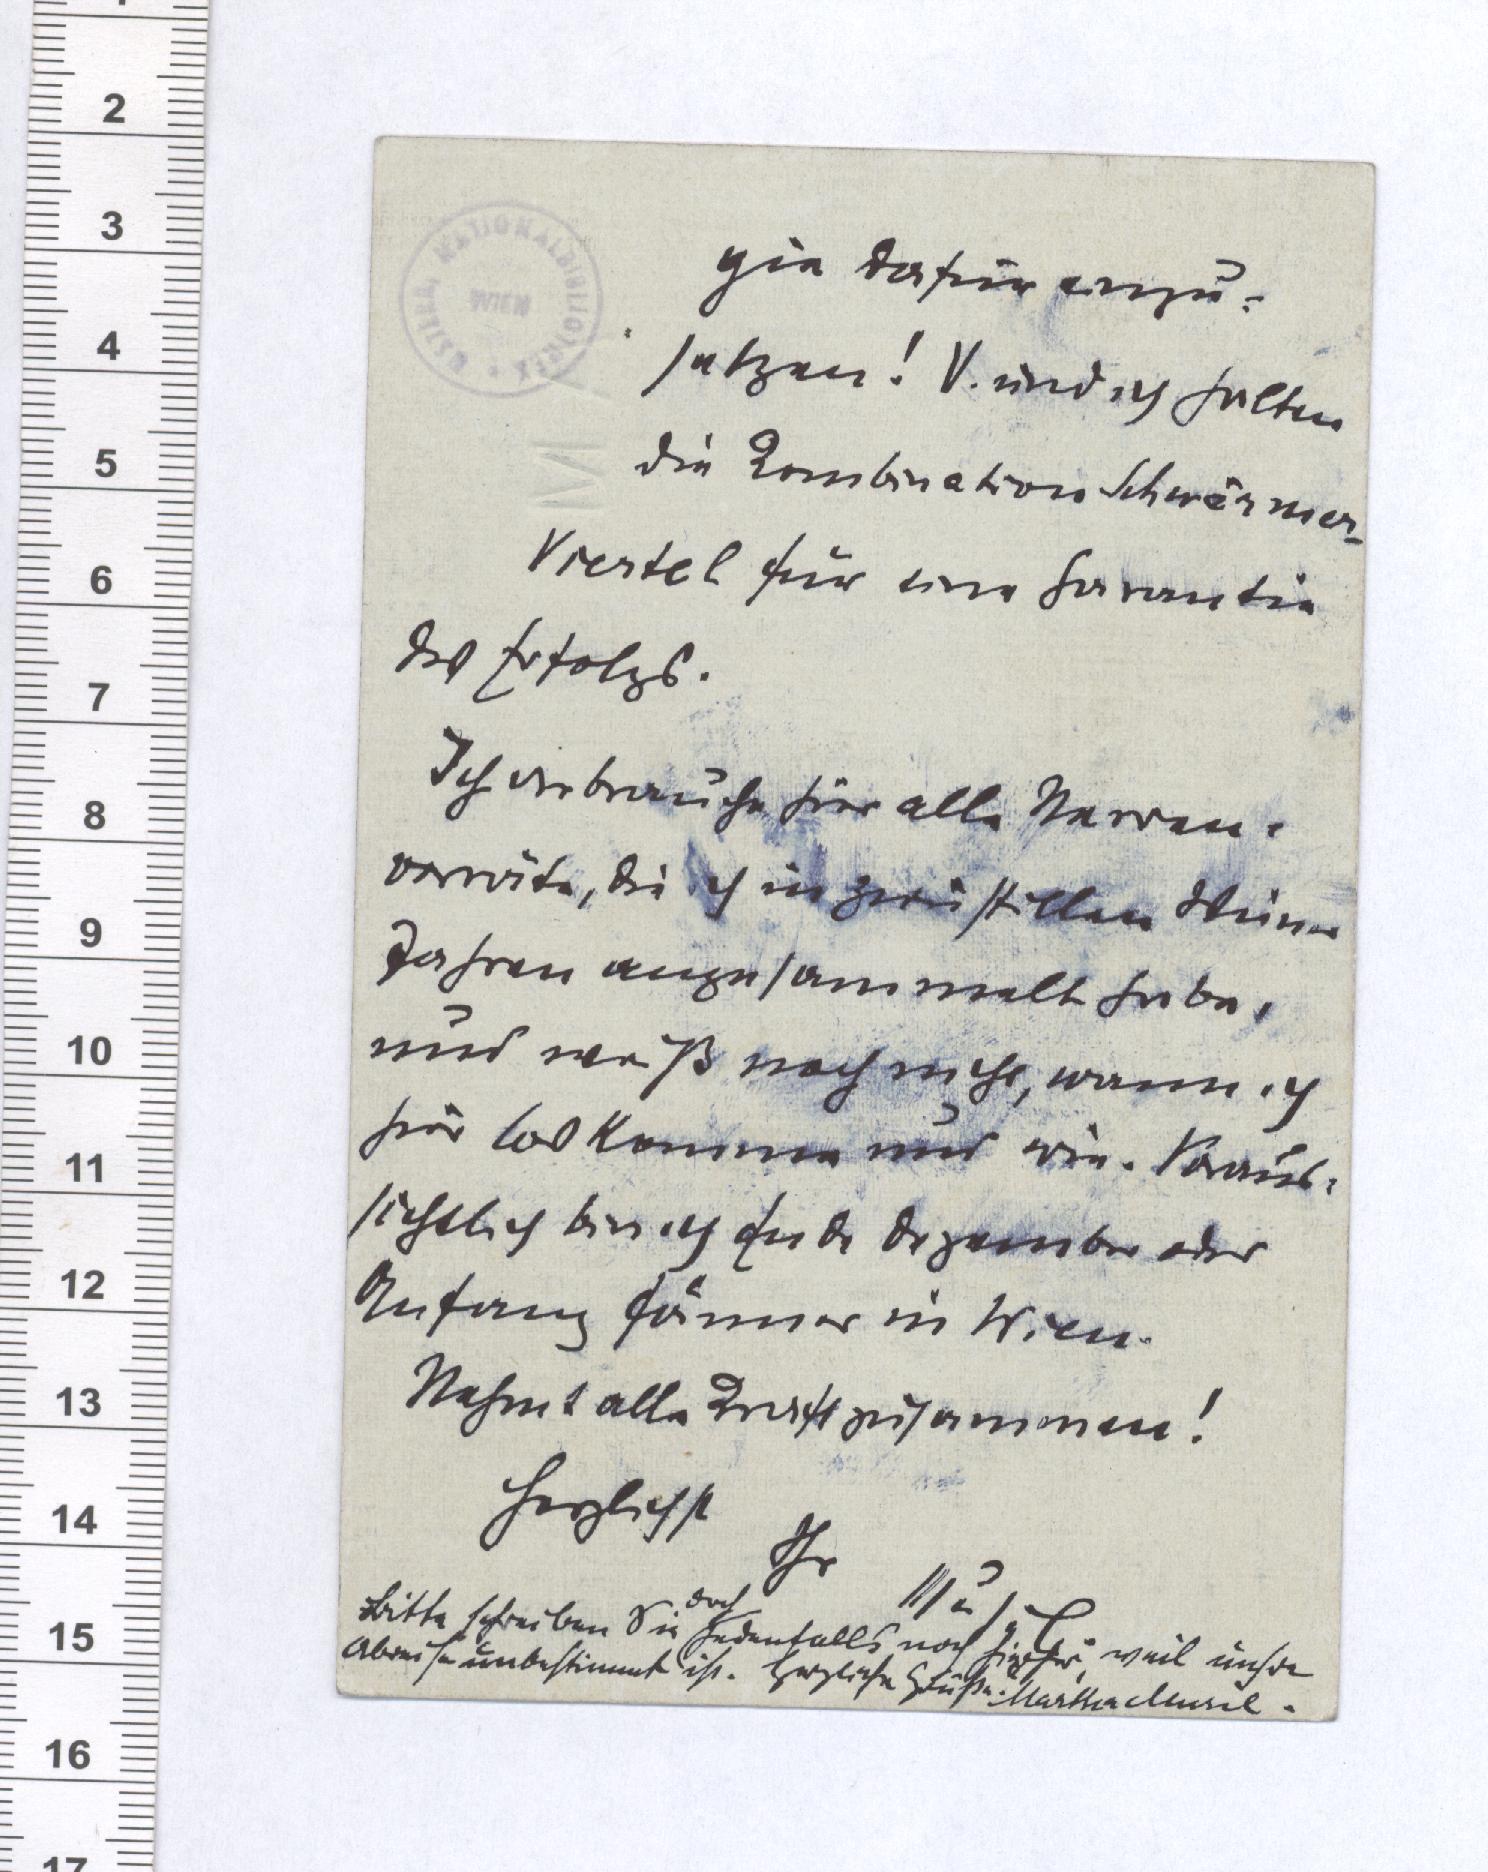 2
3
4
5
6
7
8
9
10
11
12
13
14
15
16
17
ÖSTERR. NATIONALBIBLIOTHEK
WIEN
gie dafür einzu-
setzen! V. und ich halten
die Kombination Schwärmer-
Viertel für eine Garantie
des Erfolgs.
Ich verbrauche hier alle Nerven-
vorräte, die ich in zwei stillen Wiener
Jahren angesammelt habe,
und weiß noch nicht, wann ich
hier loskomme und wie. Voraus-
sichtlich bin ich Ende Dezember oder
Anfang Jänner in Wien.
Nehmt alle Kraft zusammen!
Herzlichst
Ihr
Musil
Bitte schreiben Sie doch jedenfalls noch hierher, weil unsre
Abreise unbestimmt ist. Herzliche Grüße. Martha Musil.